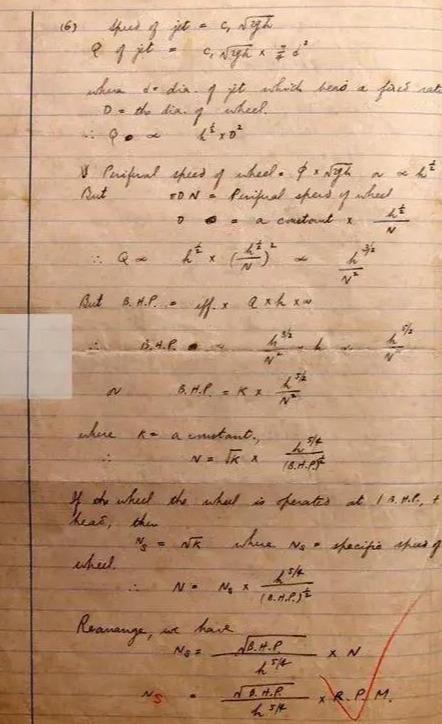 (6) Speed of jet = C, √2gh
Q of jet = C, √2gh x π/4 d²
where d = dia. of jet which bears a fixed rat
D = the dia. of wheel.
∴ Q ∝ h^½ x D²
Perifual speed of wheel = φ x √2gh or ∝ h^½
But πDN = Perifual speed of wheel
D = a constant x h^½/N
∴ Q ∝ h^½ x (h^½/N)² ∝ h^3/2/N²
But B.H.P. = eff. x Q x h x w
∴ B.H.P. ∝ h^3/2/N² x h ∝ h^5/2/N²
or B.H.P. = K x h^5/2/N²
where K = a constant.,
∴ N = √K x h^5/4/(B.H.P.)^½
If the wheel the wheel is operated at 1 B.H.P., +
head, then
Ns = √K where Ns = specific speed of
wheel.
∴ N = Ns x h^5/4/(B.H.P.)^½
Rearrange, we have
Ns = √B.H.P./h^5/4 x N
Ns = √B.H.P./h^5/4 x R.P.M.